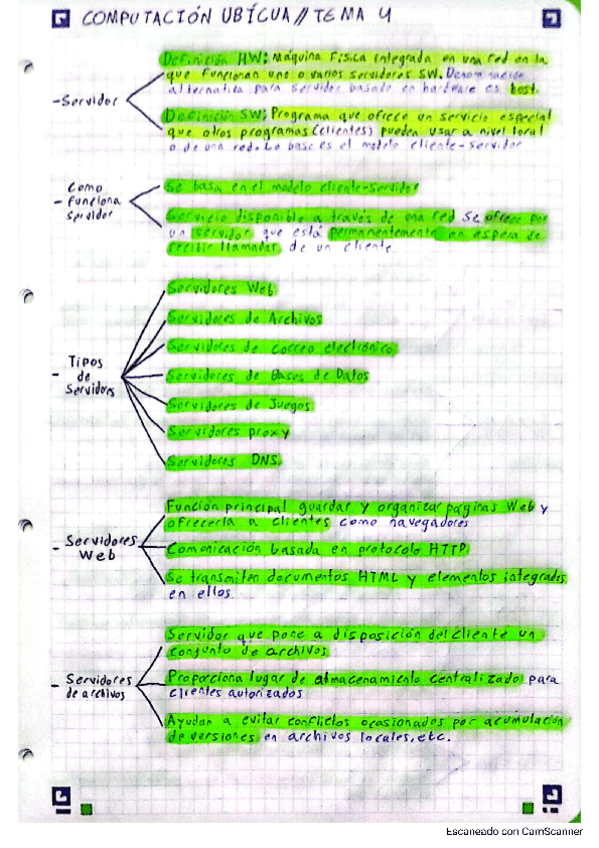 COMPUTACIÓN UBÍCUA // TEMA 4
- Servidor
Definición HW: Máquina Física integrada en una red en la
que funcionan uno o varios servidores SW. Denominación
alternativa para servidor basado en hardware es host.
Definición SW: Programa que ofrece un servicio especial
que otros programas (clientes) pueden usar a nivel local
o de una red. La base es el modelo cliente-servidor
- Como
funciona
servidor
Se basa en el modelo cliente-servidor
Servicio disponible a través de una red se ofrece por
un servidor que está permanentemente en espera de
recibir llamadas de un cliente.
- Tipos
de
Servidores
Servidores Web
Servidores de Archivos
Servidores de correo electrónico
Servidores de Bases de Datos
Servidores de Juegos
Servidores proxy
Servidores DNS.
- Servidores
Web
Función principal guardar y organizar páginas Web y
ofrecerla a clientes como navegadores
Comunicación basada en protocolo HTTP
Se transmiten documentos HTML y elementos integrados
en ellos.
- Servidores
de archivos
Servidor que pone a disposición del cliente un
conjunto de archivos
Proporciona lugar de almacenamiento centralizado para
clientes autorizados
Ayudan a evitar conflictos ocasionados por acumulación
de versiones en archivos locales, etc.
Escaneado con CamScanner